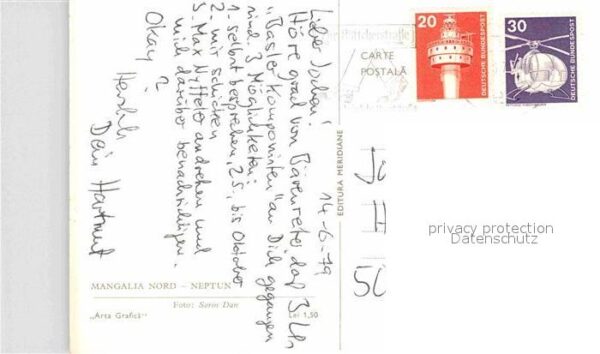 14-6-79
Lieber Jochen!
Höre grad von Bärenreiter, daß 3. Lfr.
"Basler Komponisten" an Dich gegangen
sind. 3 Möglichkeiten:
1. selbst besprechen, 25., bis Oktober
2. mir schicken
3. Max Nyffeler andrehen und
mich darüber benachrichtigen.
Okay?
Herzlich
Dein Hartmut
CARTE
POSTALĂ
20
DEUTSCHE BUNDESPOST
30
DEUTSCHE BUNDESPOST
EDITURA MERIDIANE
privacy protection
Datenschutz
MANGALIA NORD – NEPTUN
Foto: Sorin Dan
„Arta Grafică"
Lei 1,50